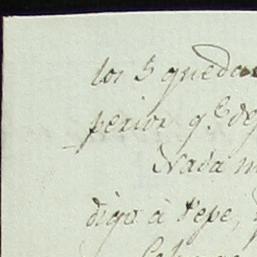 los 5 quedar
perior q.e de
Nada m
digo à Pepe,